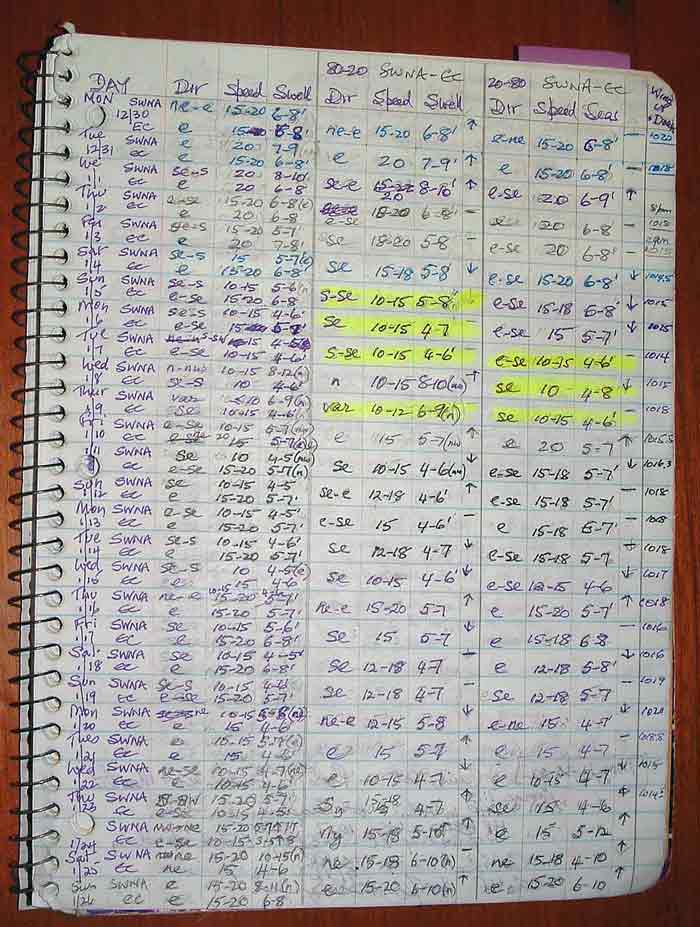 80-20 SWNA-EC 20-80 SWNA-EC
DAY Dir Speed Swell Dir Speed Swell Dir Speed Seas
MON SWNA ne-e 15-20 6-8'
12/30 EC e ne-e 15-20 6-8' ↑ e-ne 15-20 6-8' – 1020
Tue SWNA e 20 7-9'
12/31 EC e 15-20 6-8' e 20 7-9' ↑ e 15-20 6-8' – 1018
We SWNA se-s 20 8-10'
1/1 EC e 20 6-8 se-e 20 8-10' ↑ e-se 20 6-9' ↑
Thu SWNA e-se 15-20 6-8
1/2 EC e 20 6-8 e-se 6-8' – 20 6-8 –
Fri SWNA 15-20 5-7
1/3 EC e 20 7-8' se 5-8 – e-se 20 6-8' –
Sat SWNA se-s 15 5-7
1/4 EC e 15-20 6-8' se 15-18 5-8' ↓ e-se 15-20 6-8' ↓ 1014.5
Sun SWNA se-s 10-15 5-6'
1/5 EC e-se 15-20 6-8 s-se 10-15 5-8' e-se 15-18 6-8' ↓ 1015
Mon SWNA se-s 10-15 4-6'
1/6 EC e-se se 10-15 4-7 e-se 15 5-7' ↓ 1015
Tue SWNA
1/7 EC e-se 10-15 4-6' s-se 10-15 4-6' e-se 10-15 4-6' – 1014
Wed SWNA n-nw 10-15 8-12(n)
1/8 EC se-s 10 4-6' n 10-15 8-10(nw) ↑ se 10 4-8 ↓ 1015
Thur SWNA var <10 6-9(n)
1/9 EC se 10-15 4-6' var 10-12 6-9(n) se 10-15 4-6' – 1018
Fri SWNA e-se 10-15 5-7(nw)
1/10 EC 15 e 15 5-7(nw) e 20 5-7' ↑
1/11 SWNA se 10 4-5(nw)
EC e-se 15-20 5-7(n) se 10-15 4-6(nw) ↓ e-se 15-18 5-7' ↓ 1016.3
Sun SWNA se 10-15 4-5
1/12 EC e 15-20 5-7' se-e 12-18 4-6' ↑ e-se 15-18 5-7' – 1018
Mon SWNA e-se 10-15 4-5'
1/13 EC e 15-20 5-7' e-se 15 4-6' – e 15-18 5-7' –
Tue SWNA se-s 10-15 4-6'
1/14 EC e 15-20 5-7' se 12-18 4-7 ↓ e-se 15-18 5-7 1018
Wed SWNA se-s 10
1/15 EC e 15 4-6 se 10-15 4-6' ↓ e-se 12-15 4-6 ↓ 1017
Thu SWNA ne-e
1/16 EC e 15-20 5-7' ne-e 15-20 5-7 ↑ e 15-20 5-7' ↑ 1018
Fri SWNA se 10-15 5-6'
1/17 EC e 15-20 6-8' se 15 5-7 ↓ e 15-18 6-8 – 1016
Sat SWNA se 10-15 4-5'
1/18 EC e 15-20 6-8' se 12-18 4-7 – e 12-18 5-8' ↓ 1016
Sun SWNA se-s 10-15 4-6'
1/19 EC e-se 15-20 5-7' se 12-18 4-7 – se 15-18 5-7 – 1019
Mon SWNA ne 10-15
1/20 EC e 15 4-6' ne-e 12-15 5-8 ↓ e-ne 15 4-7' ↓
Tues SWNA e 10-15
1/21 EC e 15 4-6' e 15 5-7 ↑ e 15 4-7 –
Wed SWNA ne-se 10-15
1/22 EC e 10-15 4-6' e 10-15 4-7 ↓ e 10-15 4-7 1015
Thu SWNA 15-20 5-7'
1/23 EC e-se 10-15 15-18 4-7 ↑ se 15 4-6 ↑
SWNA 15-20
1/24 EC e-se 10-15 15-18 5-10' ↑ e 15 5-12 ↑
Sat SWNA ne 15-20 10-15(n)
1/25 EC ne 15 4-6 ne 15-18 6-10(n) – ne 15-18 4-10 ↑
Sun SWNA e 15-20 8-11(n)
1/26 EC e 15-20 6-8 e 15-20 6-10(n) ↑ e 15-20 6-10 ↑